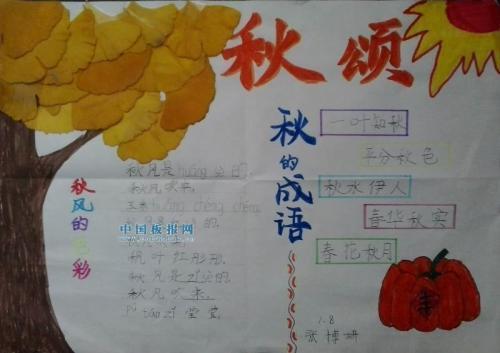 秋颂
秋的成语
一叶知秋
平分秋色
秋水伊人
春华秋实
春花秋月
秋风的色彩
秋风是huáng色的
秋风吹来
玉米huáng chéng chéng
中国板报网
枫叶红彤彤
秋风是zǐ色的
秋风吹来
pú táo zǐ 莹莹
1.8
张博妍